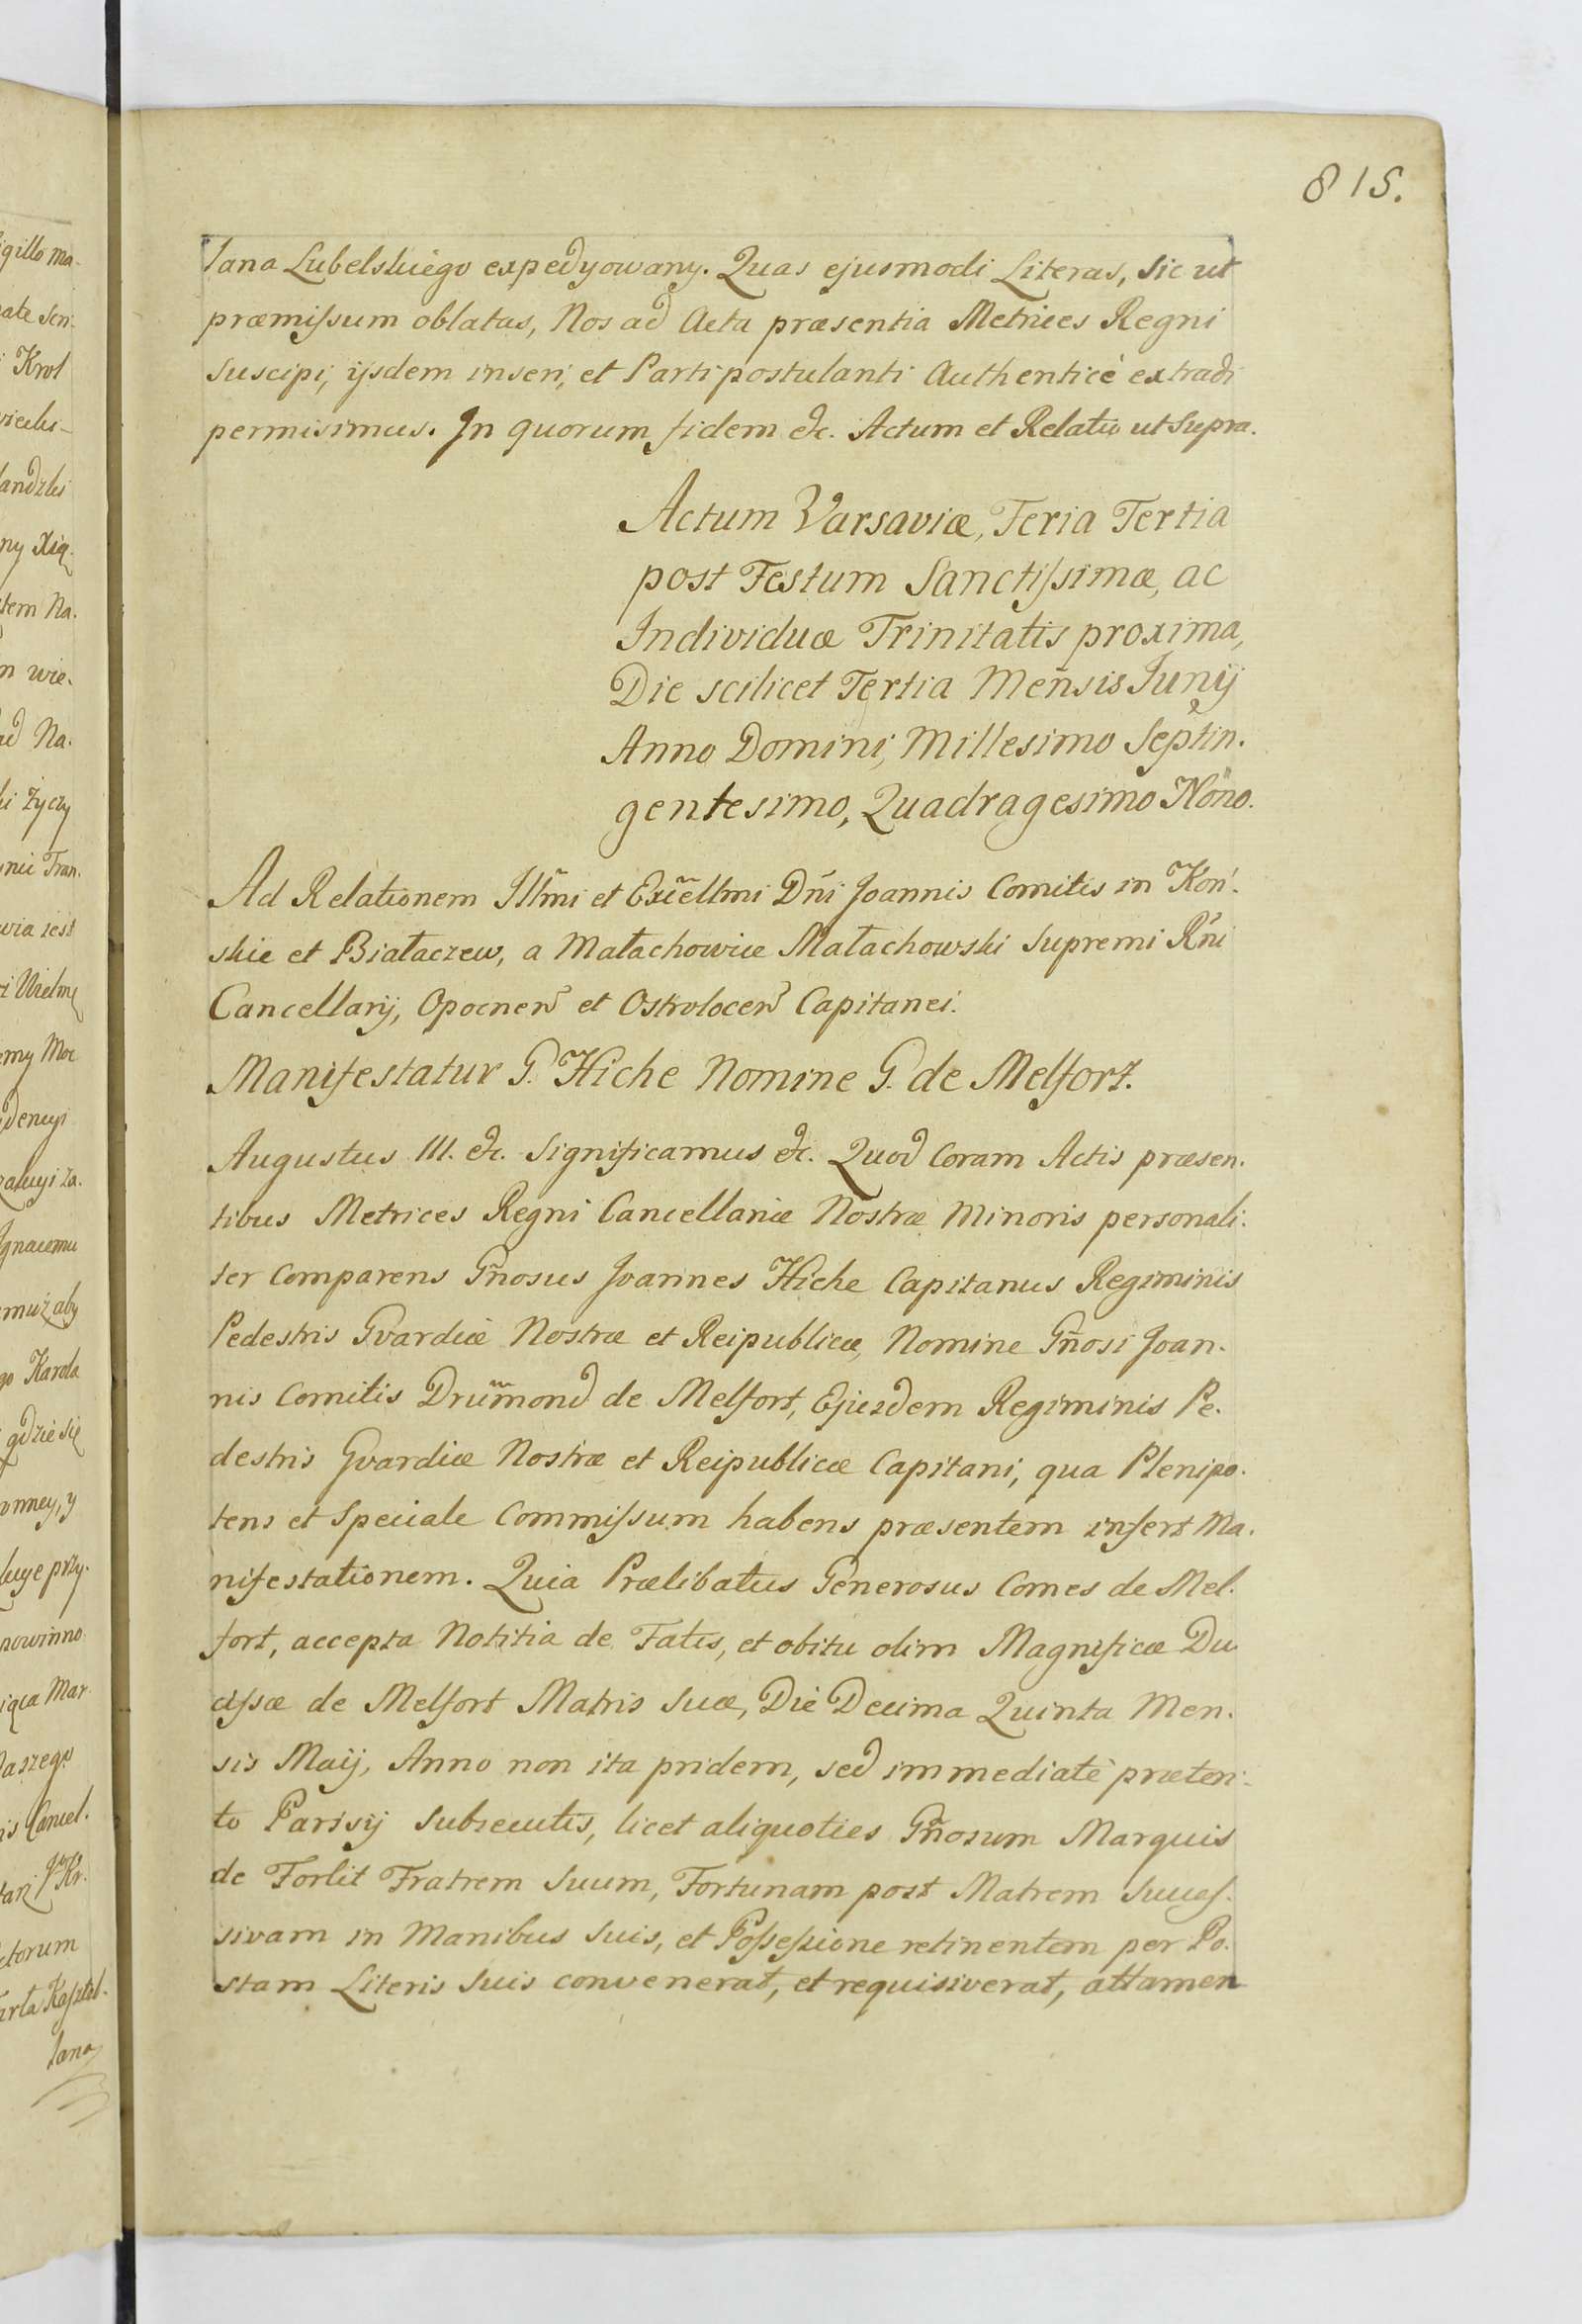 815.
Jana Lubelskiego expedyowany. Quas ejusmodi Literas, sic ut
præmissum oblatas, Nos ad Acta præsentia Metrices Regni
suscipi, ijsdem inseri, et Parti postulanti Authenticè extradi
permisimus. In quorum fidem etc. Actum et Relatio ut Supra.
Actum Varsaviæ, Feria Tertia
post Festum Sanctissimæ, ac
Individuæ Trinitatis proxima,
Die scilicet Tertia Mensis Junij
Anno Domini, Millesimo Septin.
gentesimo, Quadragesimo Nono.
Ad Relationem Illm̃i et Excellm̃i Dñi Joannis Comitis in Koń.
skie et Białaczew, a Małachowice Małachowski Supremi Rñi
Cancellarij, Opocnen̄ et Ostrolocen̄ Capitanei.
Manifestatur G. Hiche Nomine G. de Melfort.
Augustus III. etc. Significamus etc. Quod Coram Actis præsen.
tibus Metrices Regni Cancellariæ Nostræ Minoris personali.
ter Comparens Gñosus Joannes Hiche Capitanus Regiminis
Pedestris Gvardiæ Nostræ et Reipublicæ, Nomine Gñosi Joan.
nis Comitis Drum̃mond de Melfort, Ejusdem Regiminis Pe.
destris Gvardiæ Nostræ et Reipublicæ Capitani, qua Plenipo.
tens et Speciale Commissum habens præsentem infert Ma.
nifestationem. Quia Prælibatus Generosus Comes de Mel.
fort, accepta Notitia de Fatis, et obitu olim Magnificæ Du
cissæ de Melfort Matris Suæ, Die Decima Quinta Men.
sis Maij, Anno non ita pridem, sed immediatè præteri.
to Parisij Subsecutis, licet aliquoties Gñosum Marquis
de Forlit Fratrem Suum, Fortunam post Matrem Succes.
sivam in Manibus Suis, et Possessione retinentem per Po.
stam Literis Suis convenerat, et requisiverat, attamen